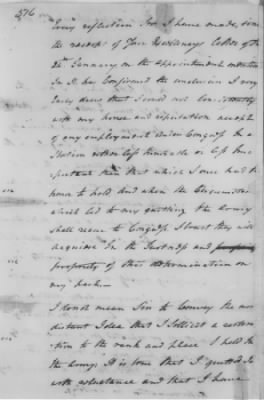 576
Every reflection Sir I have made, since
the receipt of Your Excellencys letter of the
22d January on the appointment mentioned
In it has Confirmed the conclusion I very
Early drew that I could not Consistently
with my honor and reputation accept
of any employment under Congress In a
Station either less honorable or less Im
portant than that which I once had the
honor to hold And when the Circumstances
which led to my quitting the Army
shall recur to Congress I trust they will
acquiesce In the Justness and
propriety of this determination on
my part.
I do not mean Sir to Convey the most
distant Idea that I sollicit a restora
tion to the rank and place I held In
the Army; It is true that I quitted It
with reluctance and that I have